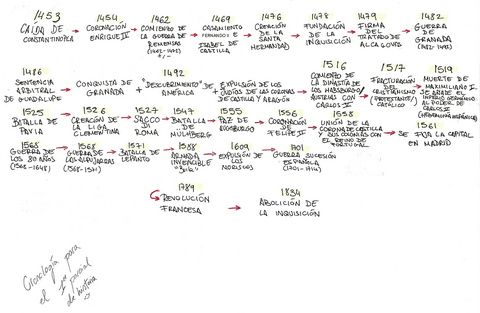 1453 1454 1462 1469 1476 1478 1479 1482
CAÍDA DE CONSTANTINOPLA → CORONACIÓN ENRIQUE IV → COMIENZO DE LA GUERRA DE REMENSAS → CASAMIENTO FERNANDO E ISABEL DE CASTILLA → CREACIÓN DE LA SANTA HERMANDAD → FUNDACIÓN DE LA INQUISICIÓN → FIRMA DEL TRATADO DE ALCAÇOVAS → GUERRA DE GRANADA (1482-1492)
1486 1492 1516 1517 1519
SENTENCIA ARBITRAL DE GUADALUPE → CONQUISTA DE GRANADA + "DESCUBRIMIENTO" DE AMÉRICA + EXPULSIÓN DE LOS JUDÍOS DE LAS CORONAS DE CASTILLA Y ARAGÓN → COMIENZO DE LA DINASTÍA DE LOS HABSBURGO/AUSTRIAS CON CARLOS → FRACTURACIÓN DEL CRISTIANISMO (PROTESTANTE/CATÓLICO) → MUERTE DE MAXIMILIANO I
1525 1526 1527 1547 1555 1556 1558 1561
BATALLA DE PAVIA → CREACIÓN DE LA LIGA CLEMENTINA → SACCO DI ROMA → BATALLA DE MÜHLBERG → PAZ DE AUGSBURGO → CORONACIÓN DE FELIPE II → UNIÓN DE LA CORONA DE CASTILLA Y SUS COLONIAS CON EL REINO DE PORTUGAL → SE FIJA LA CAPITAL EN MADRID
1568 1568 1571 1588 1609 1701
GUERRA DE LOS 80 AÑOS (1568-1648) → GUERRA DE LAS ALPUJARRAS (1568-1571) → BATALLA DE LEPANTO → ARMADA INVENCIBLE → EXPULSIÓN DE LOS MORISCOS → GUERRA SUCESIÓN ESPAÑOLA (1701-1714)
1789 1834
REVOLUCIÓN FRANCESA → ABOLICIÓN DE LA INQUISICIÓN
Cronología para
el 1er parcial
de historia